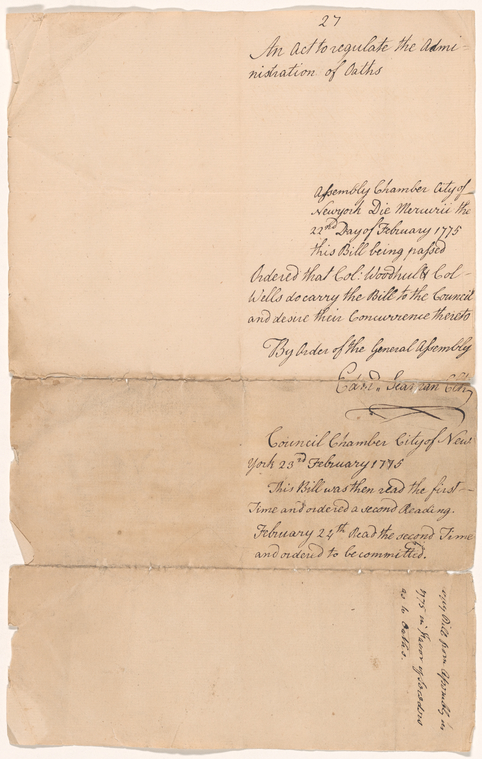 27
An Act to regulate the Admi=
nistration of Oaths
Assembly Chamber City of
Newyork Die Mercurii the
22nd Day of February 1775
this Bill being passed
Ordered that Col: Woodhull & Col
Wells do carry the Bill to the Council
and desire their Concurrence thereto
By Order of the General Assembly
Edmd. Seaman Clk
Council Chamber City of New
York 23rd February 1775
This Bill was then read the first
Time and ordered a second Reading.
February 24th Read the second Time
and ordered to be committed.
Bill from Assembly in
1775 in favor of
as to Oaths.